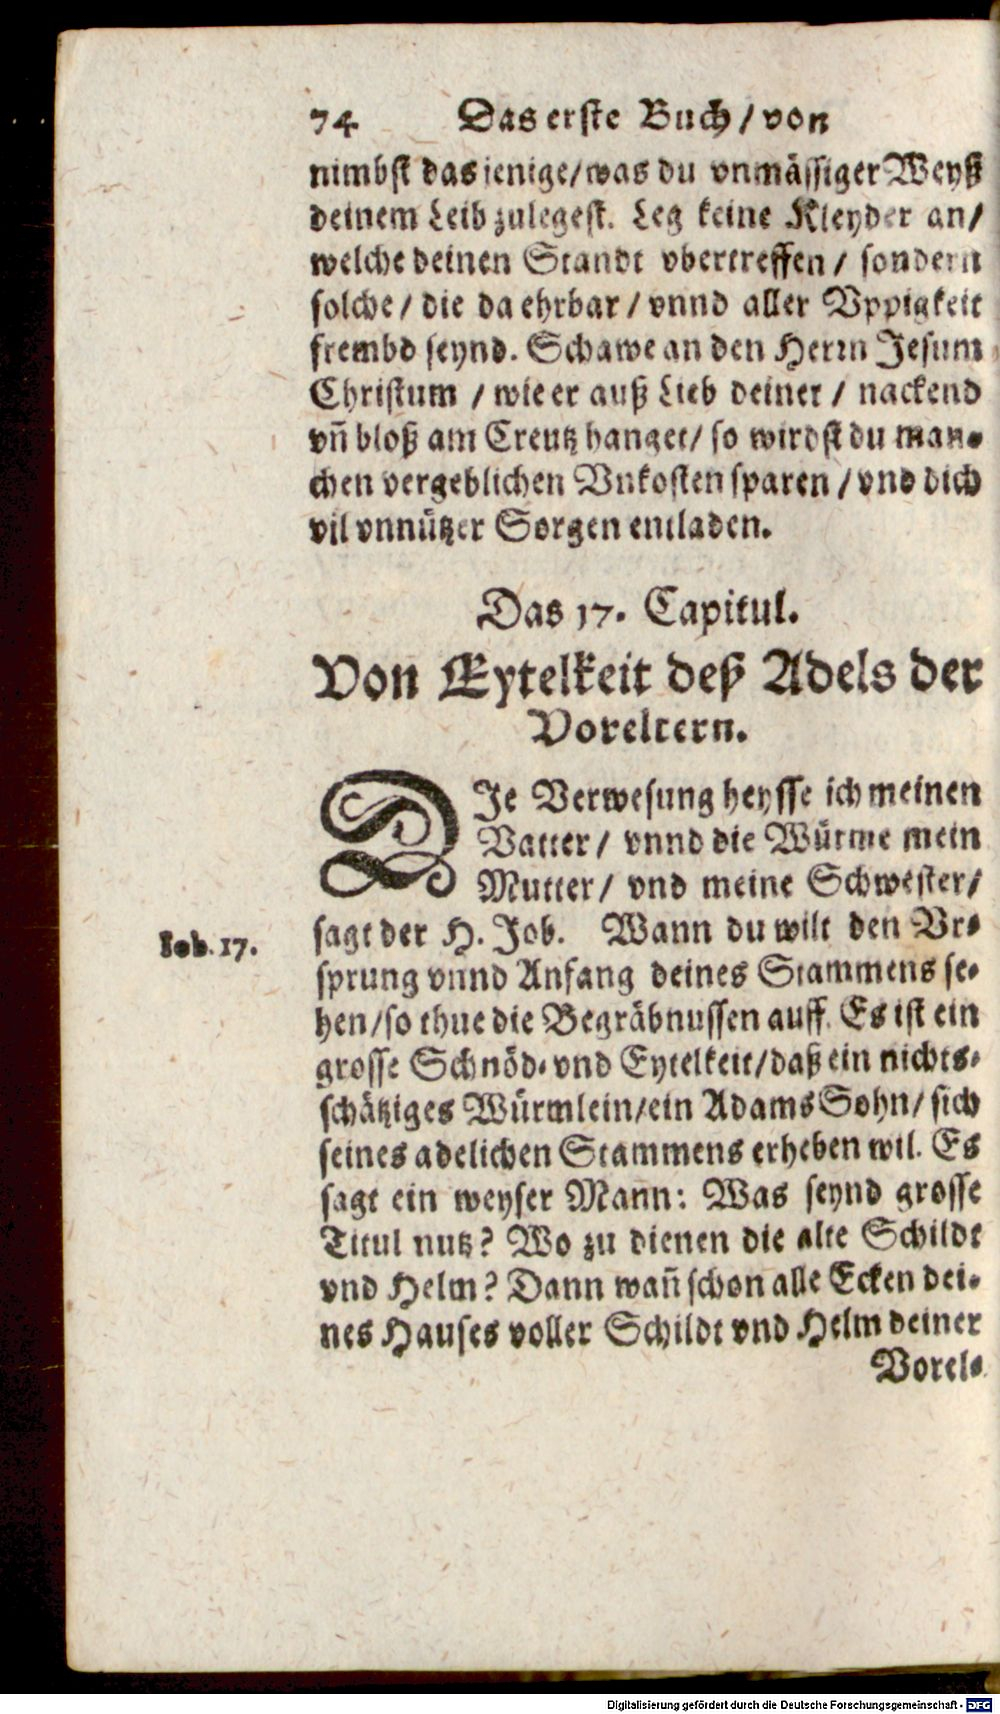 74 Das erste Buch / von
nimbst das jenige / was du vnmässiger Weyß
deinem Leib zulegest. Leg keine Kleyder an /
welche deinen Standt vbertreffen / sondern
solche / die da ehrbar / vnnd aller Vppigkeit
frembd seynd. Schawe an den Herrn Jesum
Christum / wie er auß Lieb deiner / nackend
vñ bloß am Creutz hanget / so wirdst du man-
chen vergeblichen Vnkosten sparen / vnd dich
vil vnnützer Sorgen entladen.
Das 17. Capitul.
Von Eytelkeit deß Adels der
Voreltern.
DIe Verwesung heysse ich meinen
Vatter / vnnd die Würme mein
Mutter / vnd meine Schwester /
sagt der H. Job. Wann du wilt den Vr-
Iob. 17.
sprung vnnd Anfang deines Stammens se-
hen / so thue die Begräbnussen auff. Es ist ein
grosse Schnöd- vnd Eytelkeit / daß ein nichts-
schätziges Würmlein / ein Adams Sohn / sich
seines adelichen Stammens erheben wil. Es
sagt ein weyser Mann: Was seynd grosse
Titul nutz? Wo zu dienen die alte Schildt
vnd Helm? Dann wañ schon alle Ecken dei-
nes Hauses voller Schildt vnd Helm deiner
Vorel-
Digitalisierung gefördert durch die Deutsche Forschungsgemeinschaft - DFG